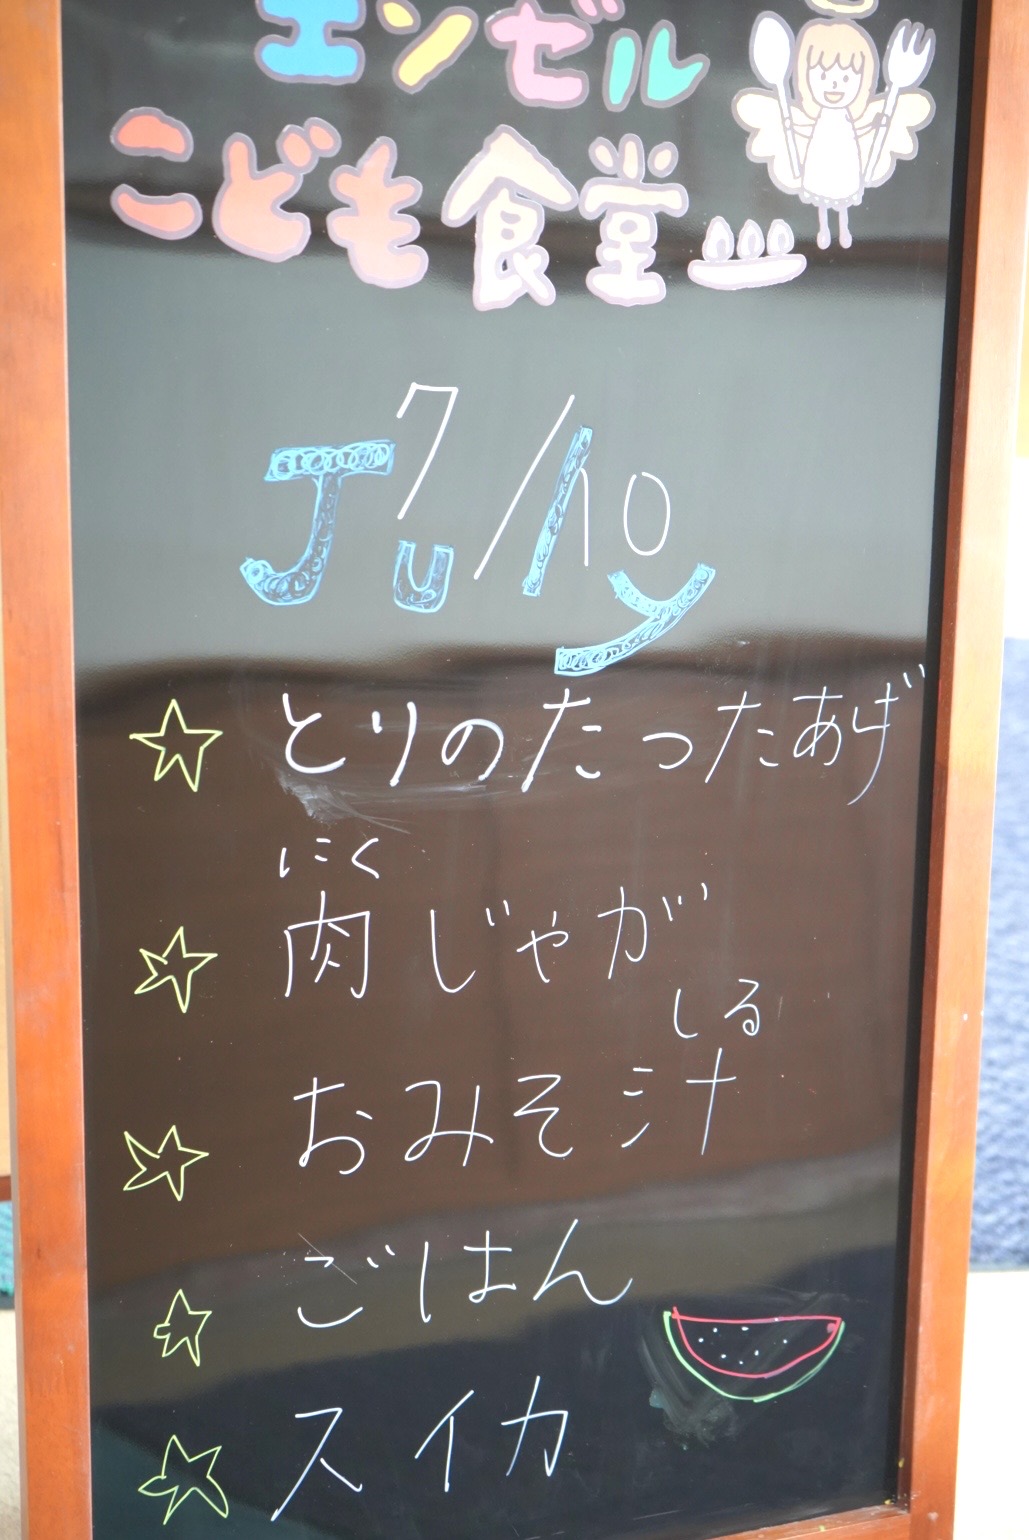 エンゼル
こども食堂
7/10
July
とりのたつたあげ
にく
肉じゃが
しる
おみそ汁
ごはん
スイカ